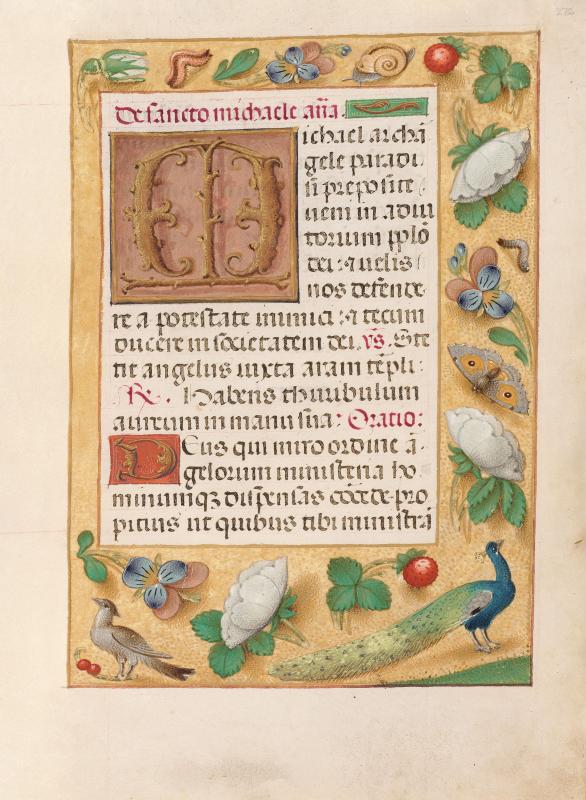 272
De sancto michaele añã
Michael archã
gele paradi
si preposite
veni in adiu
torium pplõ
dei: ⁊ velis
nos defende
re a potestate inimici: ⁊ tecum
ducere in societatem dei. vs. Ste
tit angelus iuxta aram tẽpli:
R. Habens thuribulum
aureum in manu sua: Oratio:
Deus qui miro ordine ã
gelorum ministeria ho
minumqz dispensas cõcede pro
pitius ut quibus tibi ministrã